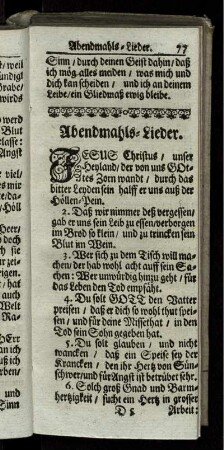 Abendmahls-Lieder. 77
Sinn / durch deinen Geist dahin / daß
ich mög alles meiden / was mich und
dich kan scheiden / und ich an deinem
Leibe / ein Gliedmaß ewig bleibe.
Abendmahls-Lieder.
JESUS Christus / unser
Heyland / der von uns GOt-
tes Zorn wandt / durch das
bitter Leyden sein halff er uns auß der
Höllen-Pein.
2. Daß wir nimmer deß vergessen /
gab er uns sein Leib zu essen / verborgen
im Brod so klein / und zu trincken sein
Blut im Wein.
3. Wer sich zu dem Tisch will ma-
chen / der hab wohl acht auff sein Sa-
chen: Wer unwürdig hinzu geht / für
das Leben den Tod empfäht.
4. Du solt GOTT den Vatter
preisen / daß er dich so wohl thut spei-
sen / und für deine Missethat / in den
Tod sein Sohn gegeben hat.
5. Du solt glauben / und nicht
wancken / daß ein Speise sey der
Krancken / den ihr Hertz von Sün-
schwer / und für Angst ist betrübet sehr.
6. Solch groß Gnad und Barm-
hertzigkeit / sucht ein Hertz in grosser
D 5 Arbeit: